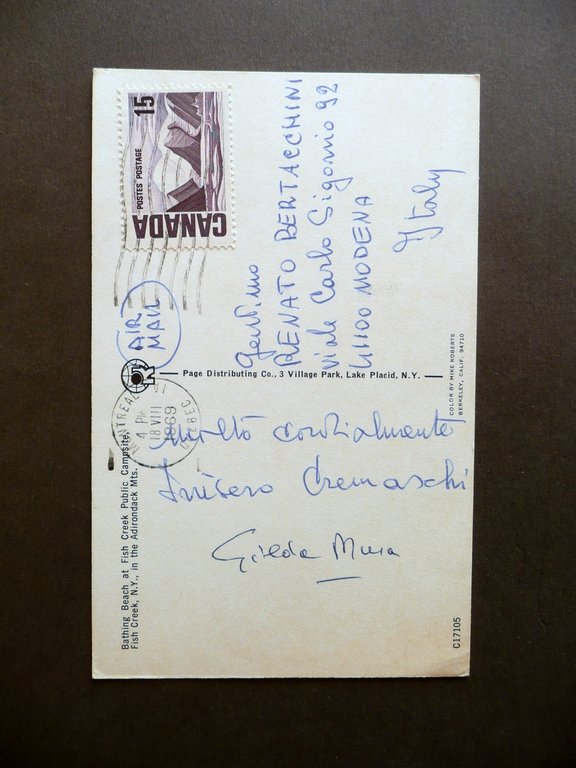 15
POSTES POSTAGE
CANADA
AIR
MAIL
MONTREAL
4 PM
18 VIII
1969
QUEBEC
Gent.mo
RENATO BERTACCHINI
viale Carlo Sigonio 92
41100 MODENA
Italy
Page Distributing Co., 3 Village Park, Lake Placid, N.Y.
COLOR BY MIKE ROBERTS
BERKELEY, CALIF. 94710
Bathing Beach at Fish Creek Public Campsite,
Fish Creek, N.Y., in the Adirondack Mts.
molto cordialmente
Inisero Cremaschi
Gilda Musa
C17105